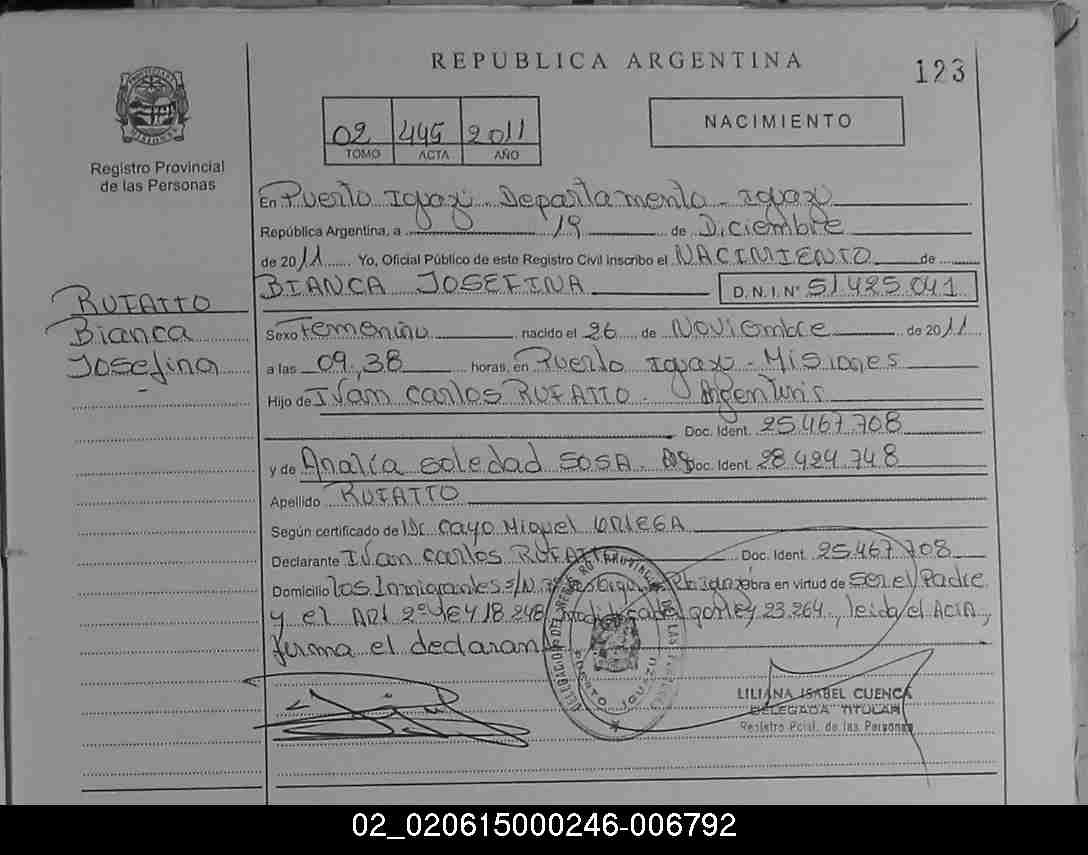 REPUBLICA ARGENTINA
123
02 445 2011
TOMO ACTA AÑO
NACIMIENTO
Registro Provincial
de las Personas
En Puerto Iguazú Departamento Iguazú
República Argentina, a 19 de Diciembre
de 2011 Yo, Oficial Público de este Registro Civil inscribo el NACIMIENTO de
BIANCA JOSEFINA D.N.I. Nº 51.425.041
RUFATTO
Bianca
Josefina
Sexo Femenino nacido el 26 de Noviembre de 2011
a las 09,38 horas, en Puerto Iguazú - Misiones
Hijo de Iván Carlos RUFATTO. Argentino
Doc. Ident. 25.467.708
y de Analía Soledad SOSA. Doc. Ident. 28.424.748
Apellido RUFATTO
Según certificado de Dr. Cayo Miguel ORTEGA
Declarante Iván Carlos RUFATTO Doc. Ident. 25.467.708
Domicilio Los Inmigrantes s/N Obra en virtud de ser el Padre
y el ART 2º LEY 18.248, modificado por ley 23.264, leída el ACTA,
firma el declarante
DELEGACION DEL REGISTRO PROVINCIAL DE LAS PERSONAS
PUERTO IGUAZU
LILIANA ISABEL CUENCA
DELEGADA TITULAR
Registro Pcial. de las Personas
02_020615000246-006792